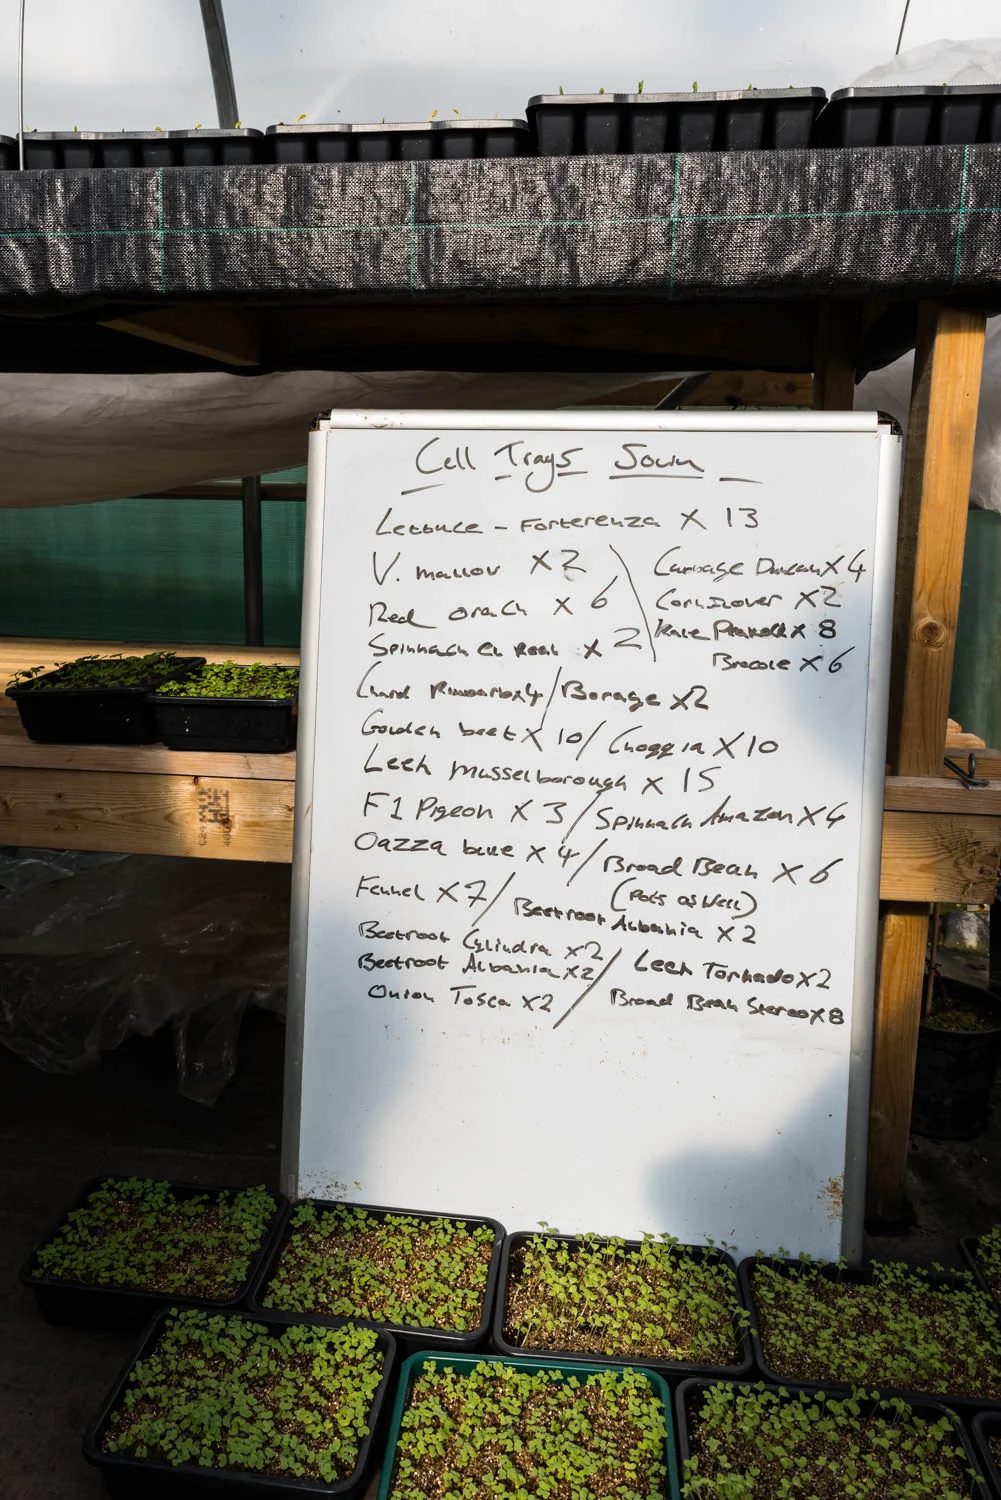 Cell Trays Sown
Lettuce - Forterenza X 13
V. mallow X 2
Red orach X 6
Spinnach X 2
Cabbage Duncan X 4
X 2
Kale X 8
X 6
Chard x4 / Borage X2
Golden beet X 10 / Choggia X 10
Leek Musselborough X 15
F1 Pigeon X 3 / Spinnach Amazon X 4
Oazza X 4 / Broad Bean X 6
(Pots as Well)
Fennel X 7 / Beetroot Albania X 2
Beetroot Cylindra X2
Beetroot Albania X2 / Leek Tornado X2
Onion Tosca X2 / Broad Bean Stereo X 8
C24